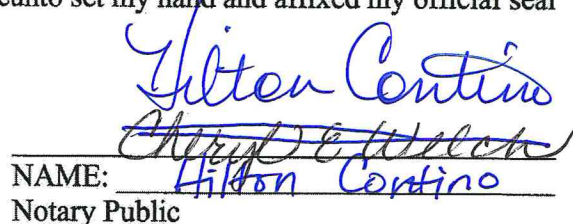 eunto set my hand and affixed my official seal
Hilton Contino
Cheryl E Welch
NAME: Hilton Contino
Notary Public